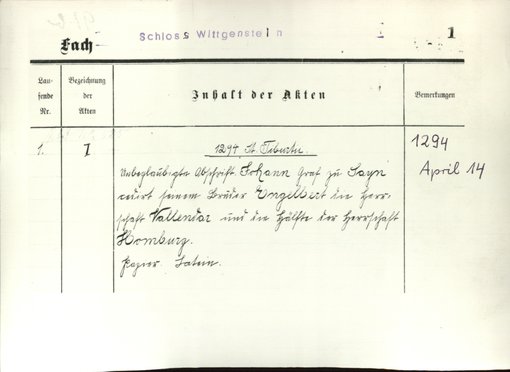 Schloss Wittgenstein 1 1
Fach
Lau-
fende
Nr.
Bezeichnung
der
Akten
Inhalt der Akten
Bemerkungen
1. 1 1294 St. Tiburtii.
Unbeglaubigte Abschrift Johann Graf zu Sayn
cedirt seinem Bruder Engelbert die Herr-
schaft Vallendar und die Hälfte der Herrschaft
Homburg.
Papier. Latein.
1294
April 14